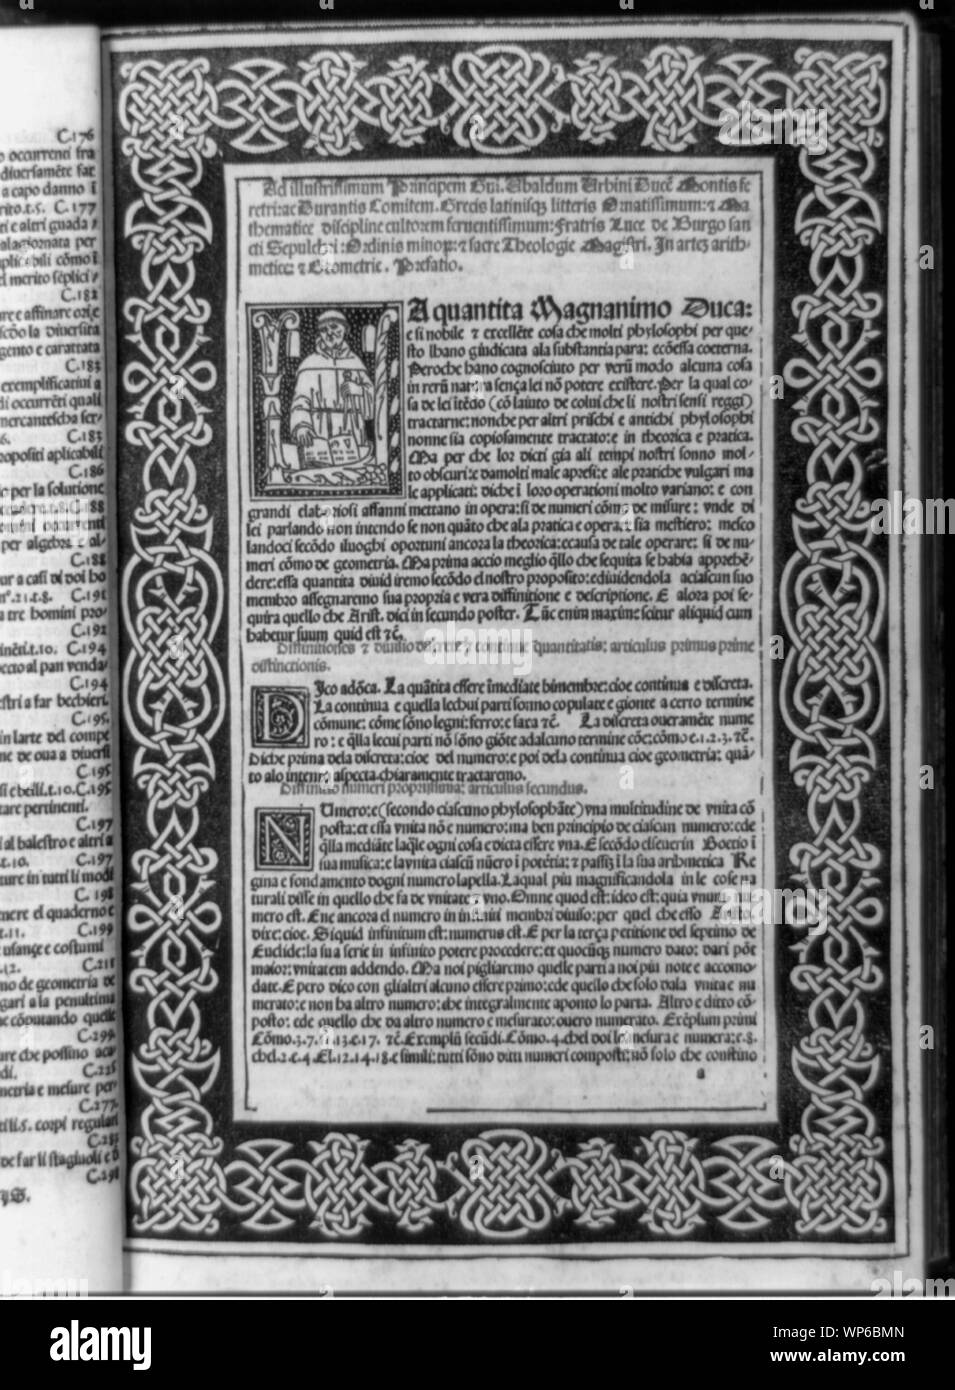 C.176
o occurrenti fra
diuersamēte fat
a capo danno i
C.177
ri e altri guada
alagionata per
plicabili cōmo i
C.182
C.183
exemplificatiui a
di occurrēti quali
mercantescha ser-
6. C.183
ropositi aplicabili
C.186
per la solutione
C.188
per algebra e al-
C.188
C.191
a tre homini pro-
C.192
C.194
C.194
stri a far berbieri.
C.195.
in larte del compe
ne de oua a diuersi
C.195
C.195
tare pertinenti.
C.197
al balestro e altri a
t.10. C.197
ture in tutti li modi
C.198
nere el quaderno e
t.11. C.199
usançe e costumi
.12. C.211
mo de geometria de
gari a la penultima
e cōputando quelle
C.299
are che possino aca
di. C.225
metria e mesure per
C.277.
C.283
de far li stagiuoli e d
C.291
Ad illustrissimum Principem Gui. Ubaldum Urbini Ducē Montis fe
retri: ac Durantis Comitem. Grecis latinisqȝ litteris Ornatissimum: ⁊ Ma
thematice discipline cultorem feruentissimum: Fratris Luce de Burgo san
cti Sepulchri: Ordinis minoȝ: ⁊ sacre Theologie Magistri. In arteȝ arith
metice: ⁊ Geometrie. Prefatio.
LA quantita Magnanimo Duca:
e si nobile ⁊ excellēte cosa che molti phylosophi per que
sto lhano giudicata ala substantia para: e cōessa coeterna.
Peroche hano cognosciuto per verū modo alcuna cosa
in rerū natura sença lei nō potere existere. Per la qual co-
sa de lei itēdo (cō laiuto de colui che li nostri sensi reggi)
tractarne: nonche per altri prischi e antichi phylosophi
nonne sia copiosamente tractato: e in theorica e pratica.
Ma per che lor dicti gia ali tempi nostri sonno mol-
to obscuri: e da molti male apresi: e ale pratiche vulgari ma
le applicati: diche i loro operationi molto variano: e con
grandi elaboriosi affanni mettano in opera: si de numeri cōmo de misure: vnde di
lei parlando non intendo se non quāto che ala pratica e opera, sia mestiero: mesco
landoci secōdo iluoghi oportuni ancora la theorica: e causa de tale operare: si de nu-
meri cōmo de geometria. Ma prima accio meglio q̄llo che sequita se habia apprehē-
dere: essa quantita diuid iremo secōdo el nostro proposito: e diuidendola aciascun suo
membro assegnaremo sua propria e vera diffinitione e descriptione. E alora poi se-
quira quello che Arist. dici in secundo poster. Tūc enim maxime scitur aliquid cum
habetur suum quid est ⁊c̄.
Diffinitiones ⁊ diuisio discrete ⁊ continue quantitatis: articulus primus prime
distinctionis.
DIco adōca. La quātita essere imediate bimembre: cioe continua e discreta.
La continua e quella lecbui parti sonno copulate e gionte a certo termine
cōmune: cōme sōno legni: ferro: e saxa ⁊c̄. La discreta oueramēte nume
ro: e q̄lla lecui parti nō sōno giōte adalcuno termine cōe: cōmo e.1.2.3. ⁊c̄.
Diche prima dela discreta: cioe del numero: e poi dela continua cioe geometria: quā-
to alo intento aspecta chiaramente tractaremo.
Diffinitio numeri proprissima: articulus secundus.
NUmero: e (secondo ciascuno phylosophāte) vna multitudine de vnita cō
posta: et essa vnita nō e numero: ma ben principio de ciascun numero: ede
q̄lla mediāte laq̄le ogni cosa e dicta essere vna. E secōdo el seuerin Boetio i
sua musica: e la vnita ciascū nūero i potētia: ⁊ passi i la sua arithmetica Re
gina e fondamento dogni numero lapella. Laqual piu magnificandola in le cose na
turali disse in quello che fa de vnitate ⁊ vno. Omne quod est: ideo est: quia vnum nu-
mero est. Ene ancora el numero in infiniti membri diuiso: per quel che esso Aristo.
dixe: cioe. Siquid infinitum est: numerus est. E per la terça petitione del septimo de
Euclide: la sua serie in infinito potere procedere: et quocūqȝ numero dato: dari pōt
maior: vnitatem addendo. Ma noi pigliaremo quelle parti a noi piu note e accomo-
date. E pero dico con gli altri alcuno essere primo: ede quello che solo dala vnita e nu
merato: e non ha altro numero: che integralmente aponto lo parta. Altro e ditto cō-
posto: ede quello che da altro numero e mesurato: ouero numerato. Exēplum primi
Cōmo.3.7.11.13. e.17. ⁊c̄. Exemplū secūdi. Cōmo.4. chel doi lo mesura e numera: e.8.
chel.2. e.4 El.12.14.18. e simili: tutti sōno ditti numeri composti: nō solo che constino
a
alamy
Image ID: WP6BMN
www.alamy.com